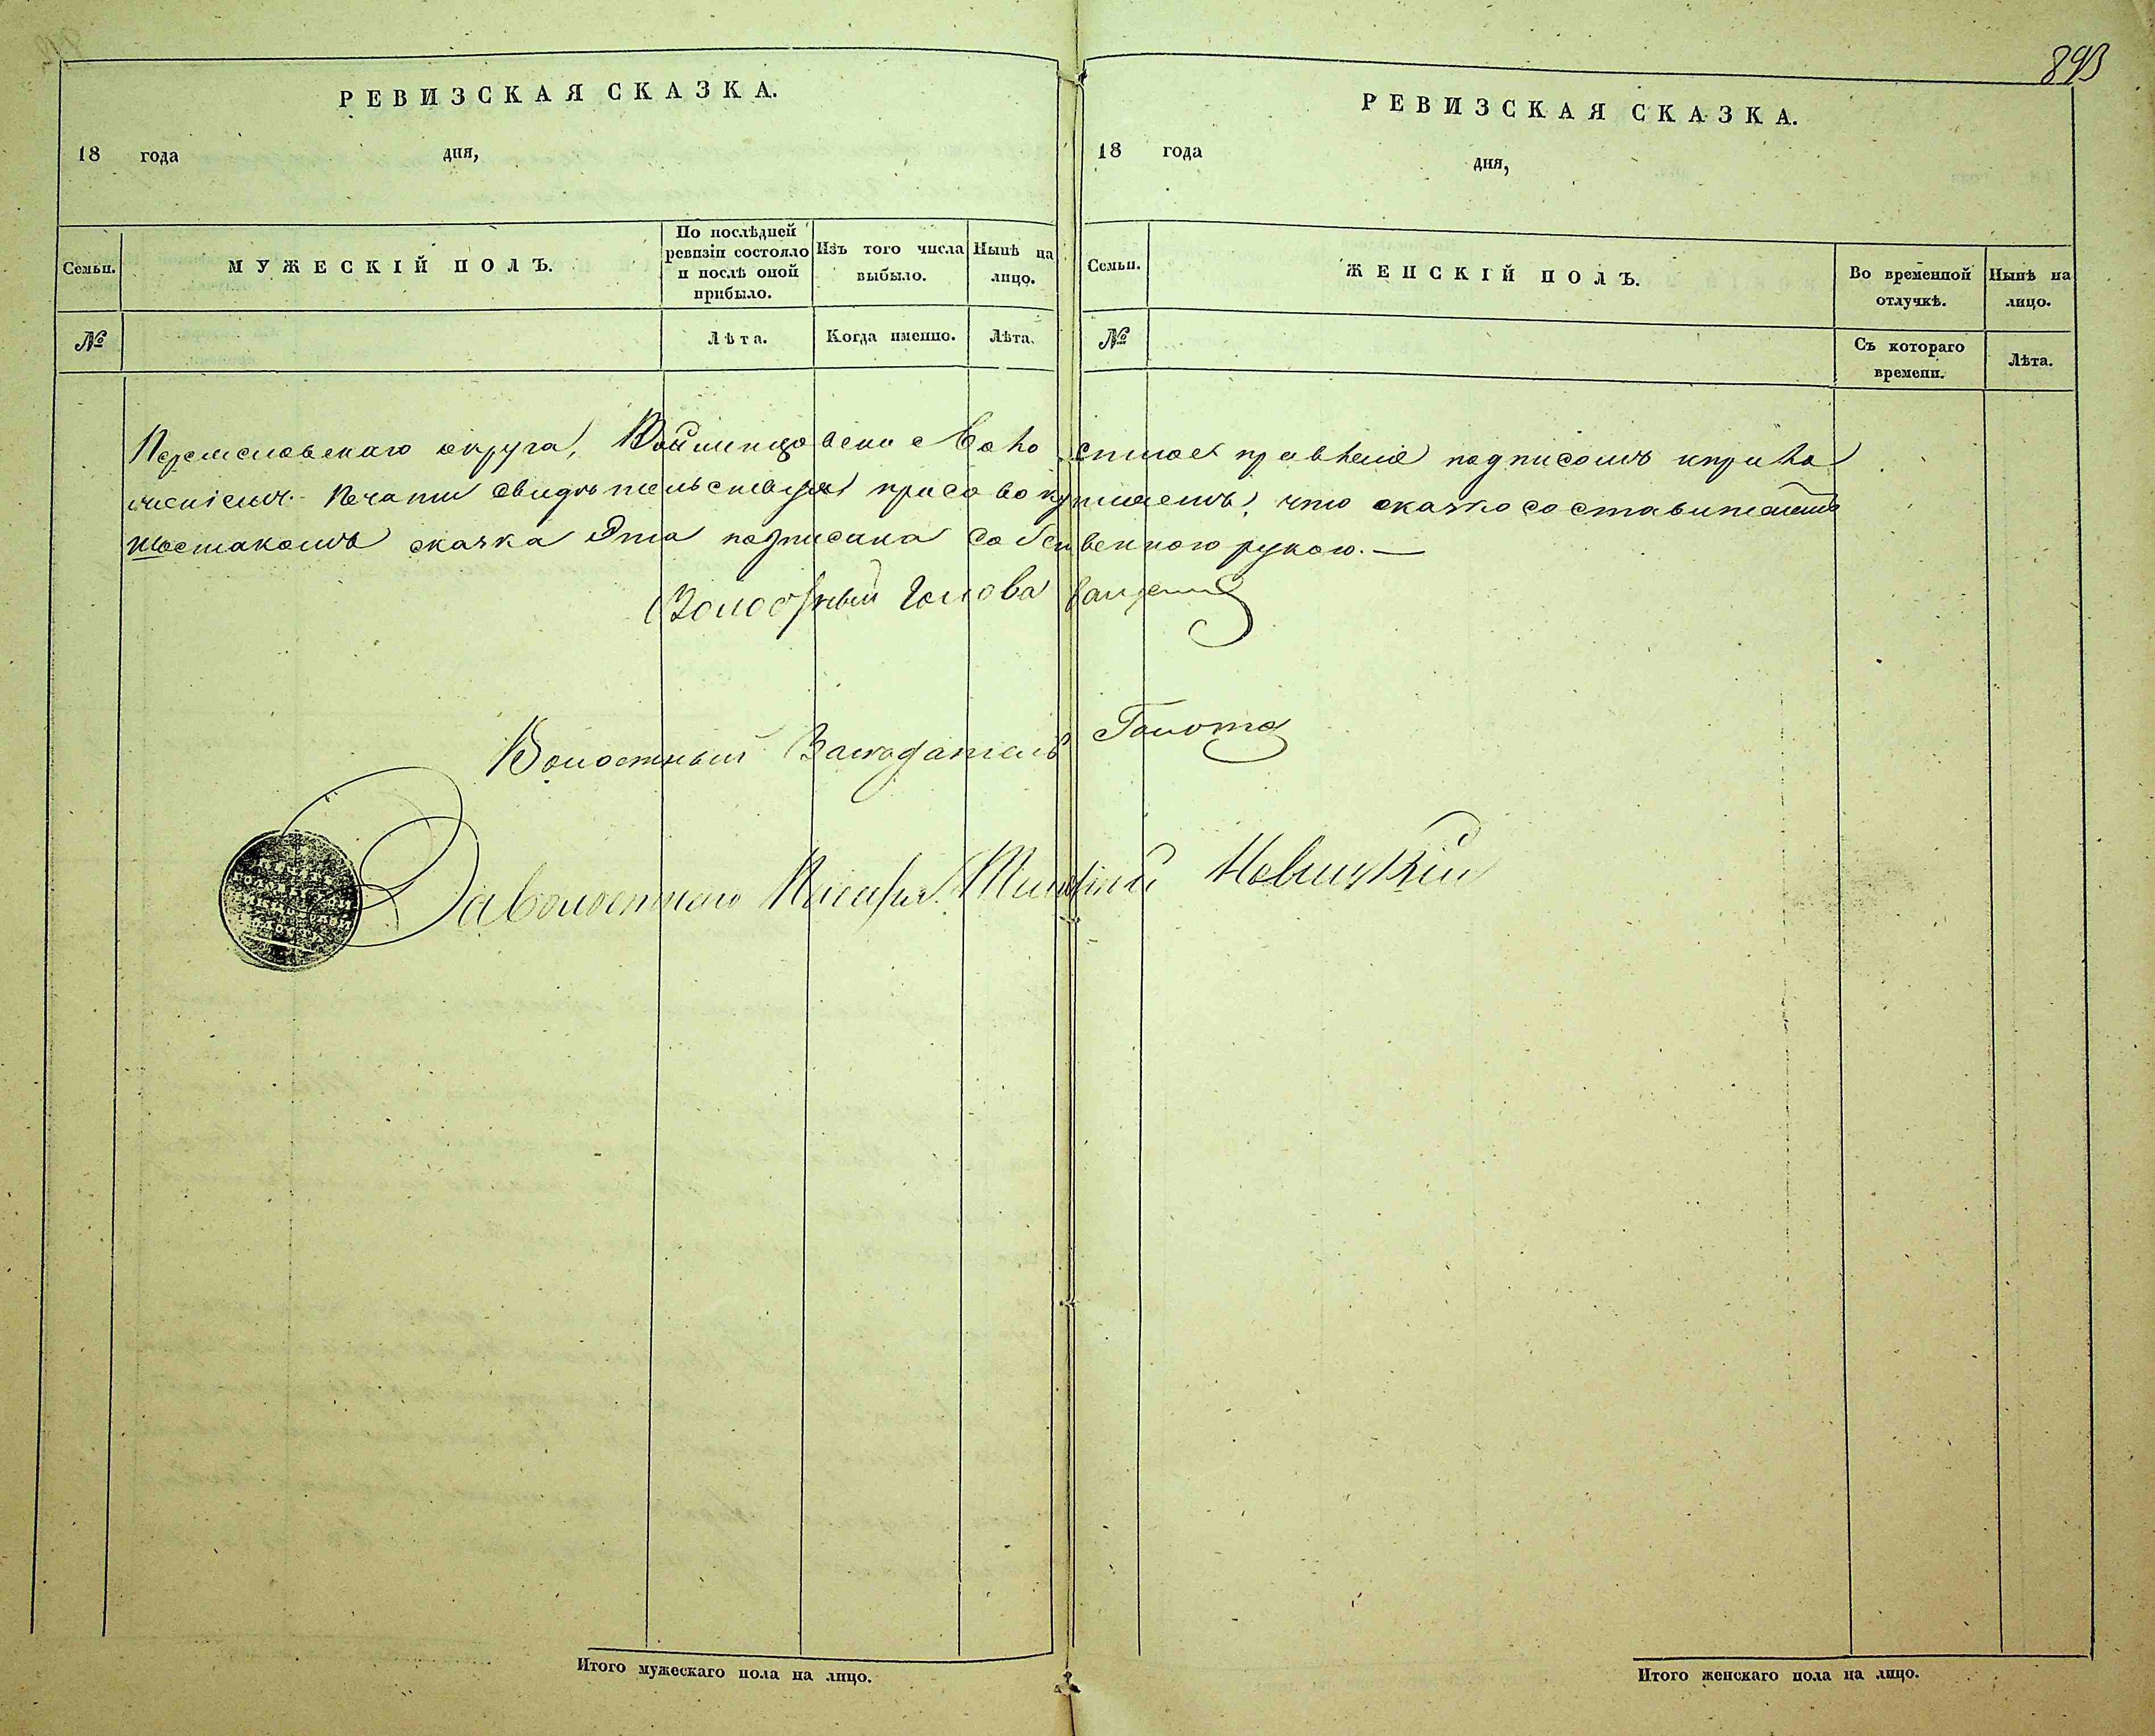 893
РЕВИЗСКАЯ СКАЗКА.
18 года дня,
Семьи.
МУЖЕСКІЙ ПОЛЪ.
По послѣдней ревизіи состояло и послѣ оной прибыло.
Изъ того числа выбыло.
Нынѣ на лицо.
№
Лѣта.
Когда именно.
Лѣта.
РЕВИЗСКАЯ СКАЗКА.
18 года дня,
Семьи.
ЖЕНСКІЙ ПОЛЪ.
Во временной отлучкѣ.
Нынѣ на лицо.
№
Съ котораго времени.
Лѣта.
округа, Войтовское Волостное правленіе подписомъ и прило
женіемъ Печати свидѣтельствуя присовокупляемъ, что сказко составителемъ
Шостакомъ сказка Эта подписана собственною рукою. —
Волостный Голова
Волостный Заседатель Голота
За Волостнаго Писаря Новицкій
Итого мужескаго пола на лицо.
Итого женскаго пола на лицо.